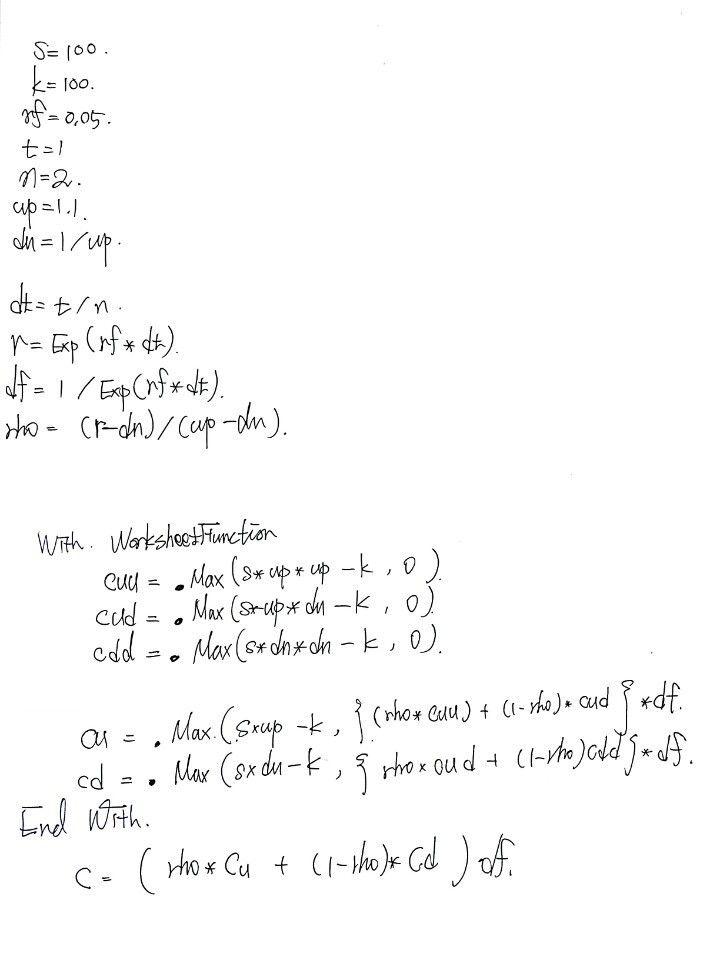 S=100.
k=100.
rf=0.05.
t=1
n=2.
up=1.1.
dn=1/up.
dt=t/n.
r=Exp(rf*dt).
df=1/Exp(rf*dt).
rho=(r-dn)/(up-dn).
With. WorksheetFunction
cuu=.Max(s*up*up-k, 0).
cud=.Max(s*up*dn-k, 0).
cdd=.Max(s*dn*dn-k, 0).
cu=.Max.(s*up-k, {(rho*cuu)+(1-rho)*cud}*df.
cd=.Max(s*dn-k, {rho*cud+(1-rho)cdd}*df.
End With.
C=(rho*Cu+(1-rho)*Cd)df.